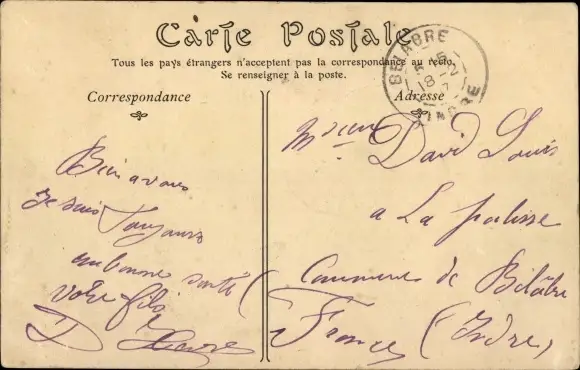 Carte Postale
Tous les pays étrangers n'acceptent pas la correspondance au recto.
Se renseigner à la poste.
Correspondance
Adresse
BELABRE
INDRE
Bien a vous
je suis Toujours
en bonne santé
votre fils
D
Mr
David Louis
a La palisse
Commune de Bélâbre
France (Indre)